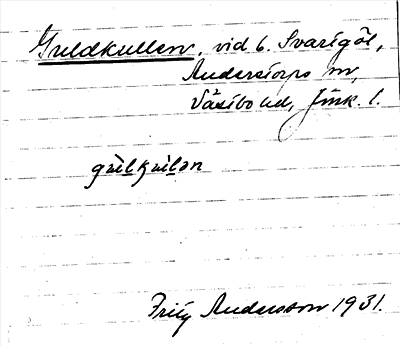 Guldkullen, vid b. Svartgöl,
Anderstorps sn,
Västbo hd, Jönk. l.
gu̇lkulən
Fritz Andersson 1931.